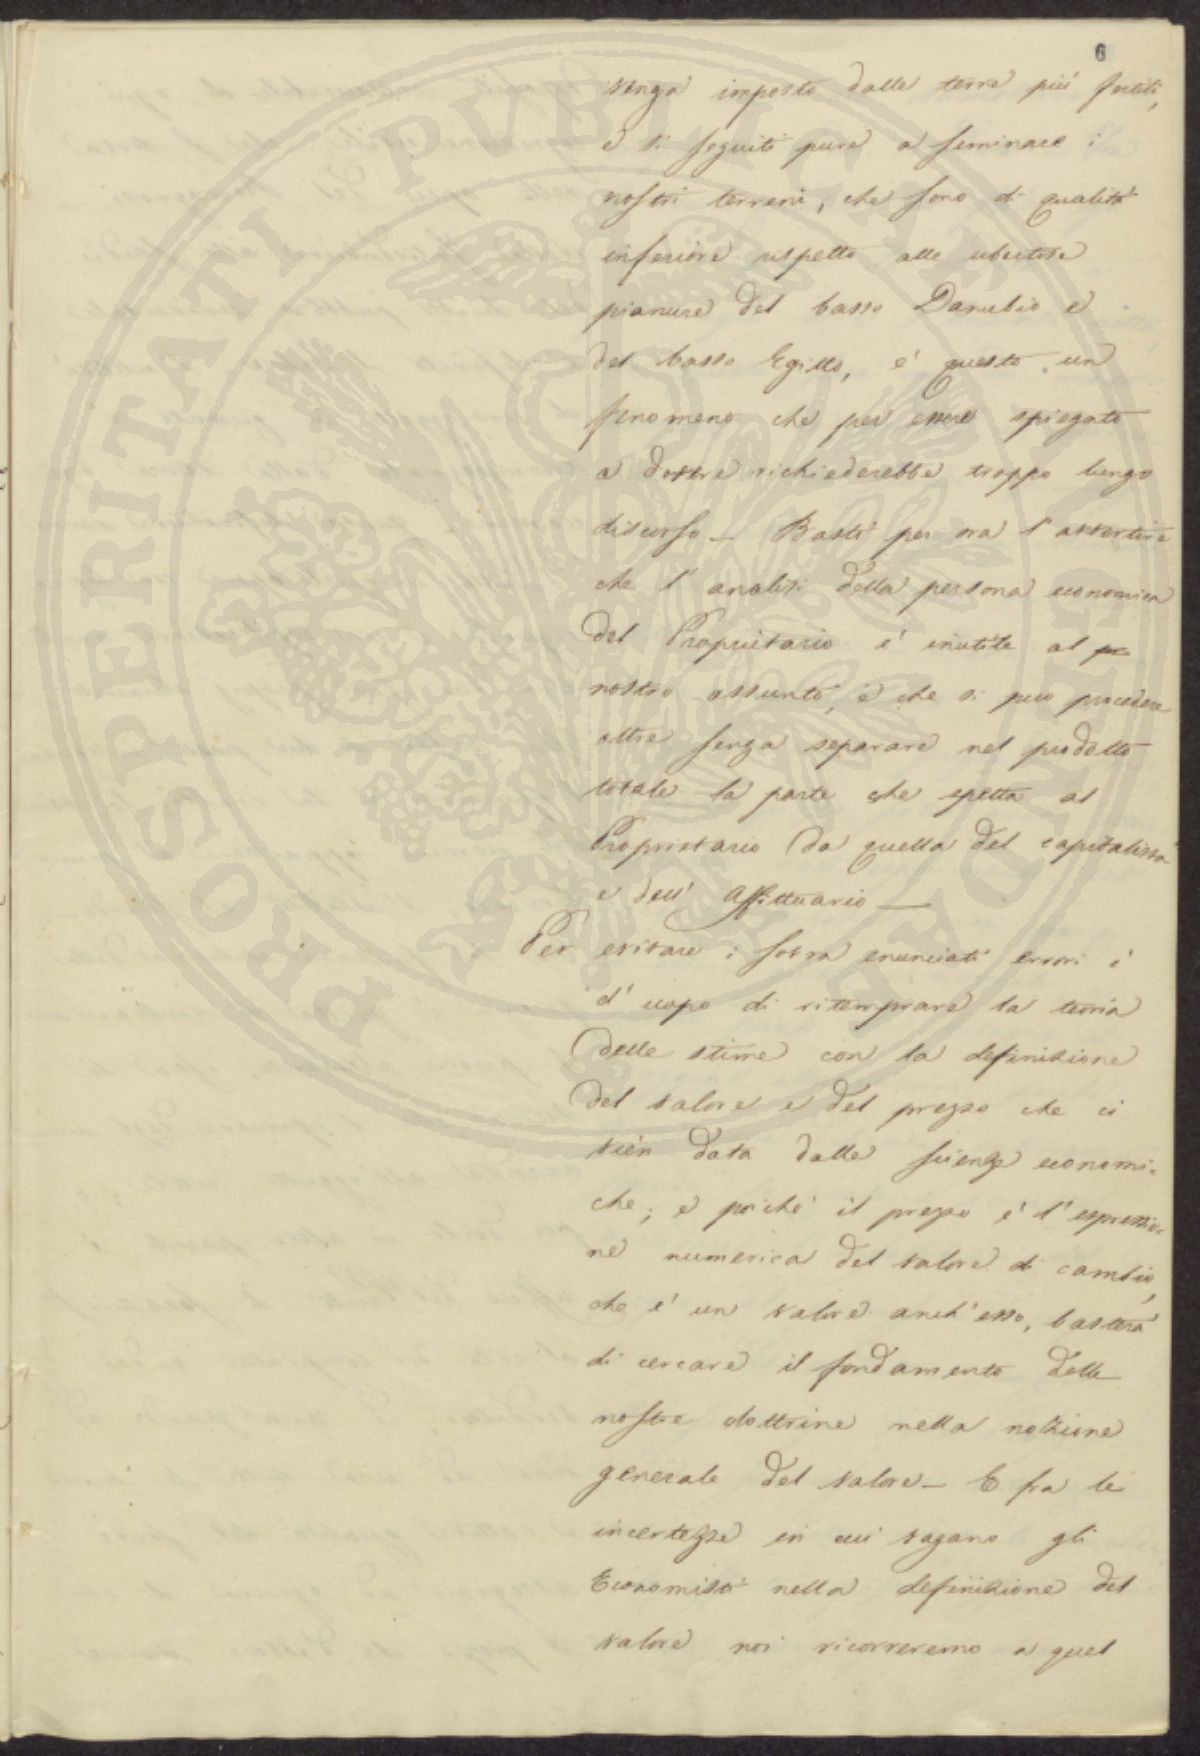 6
senza imposta dalle terre più fertili,
e si seguiti pure a seminare i
nostri terreni, che sono di qualità
inferiore rispetto alle ubertose
pianure del basso Danubio e
del basso Egitto, e' questo un
fenomeno che per essere spiegato
a dovere richiederebbe troppo lungo
discorso — Basti per ora l'assertire
che l'analisi della persona economica
del Proprietario e' inutile al pr
nostro assunto, e che si può procedere
oltre senza separare nel prodotto
totale la parte che spetta al
Proprietario da quella del capitalista
e dell' Affittuario —
Per evitare i sovra enunciati errori è
d' uopo di ritemprare la teoria
delle stime con la definizione
del valore e del prezzo che ci
vien data dalle scienze economi-
che; e poichè il prezzo e' l'espressio-
ne numerica del valore di cambio,
che e' un valore anch'esso, basterà
di cercare il fondamento delle
nostre dottrine nella nozione
generale del valore — E fra le
incertezze in cui vagano gli
Economisti nella definizione del
valore noi ricorreremo a quel
PROSPERITATI PVBLICAE AVGENDAE